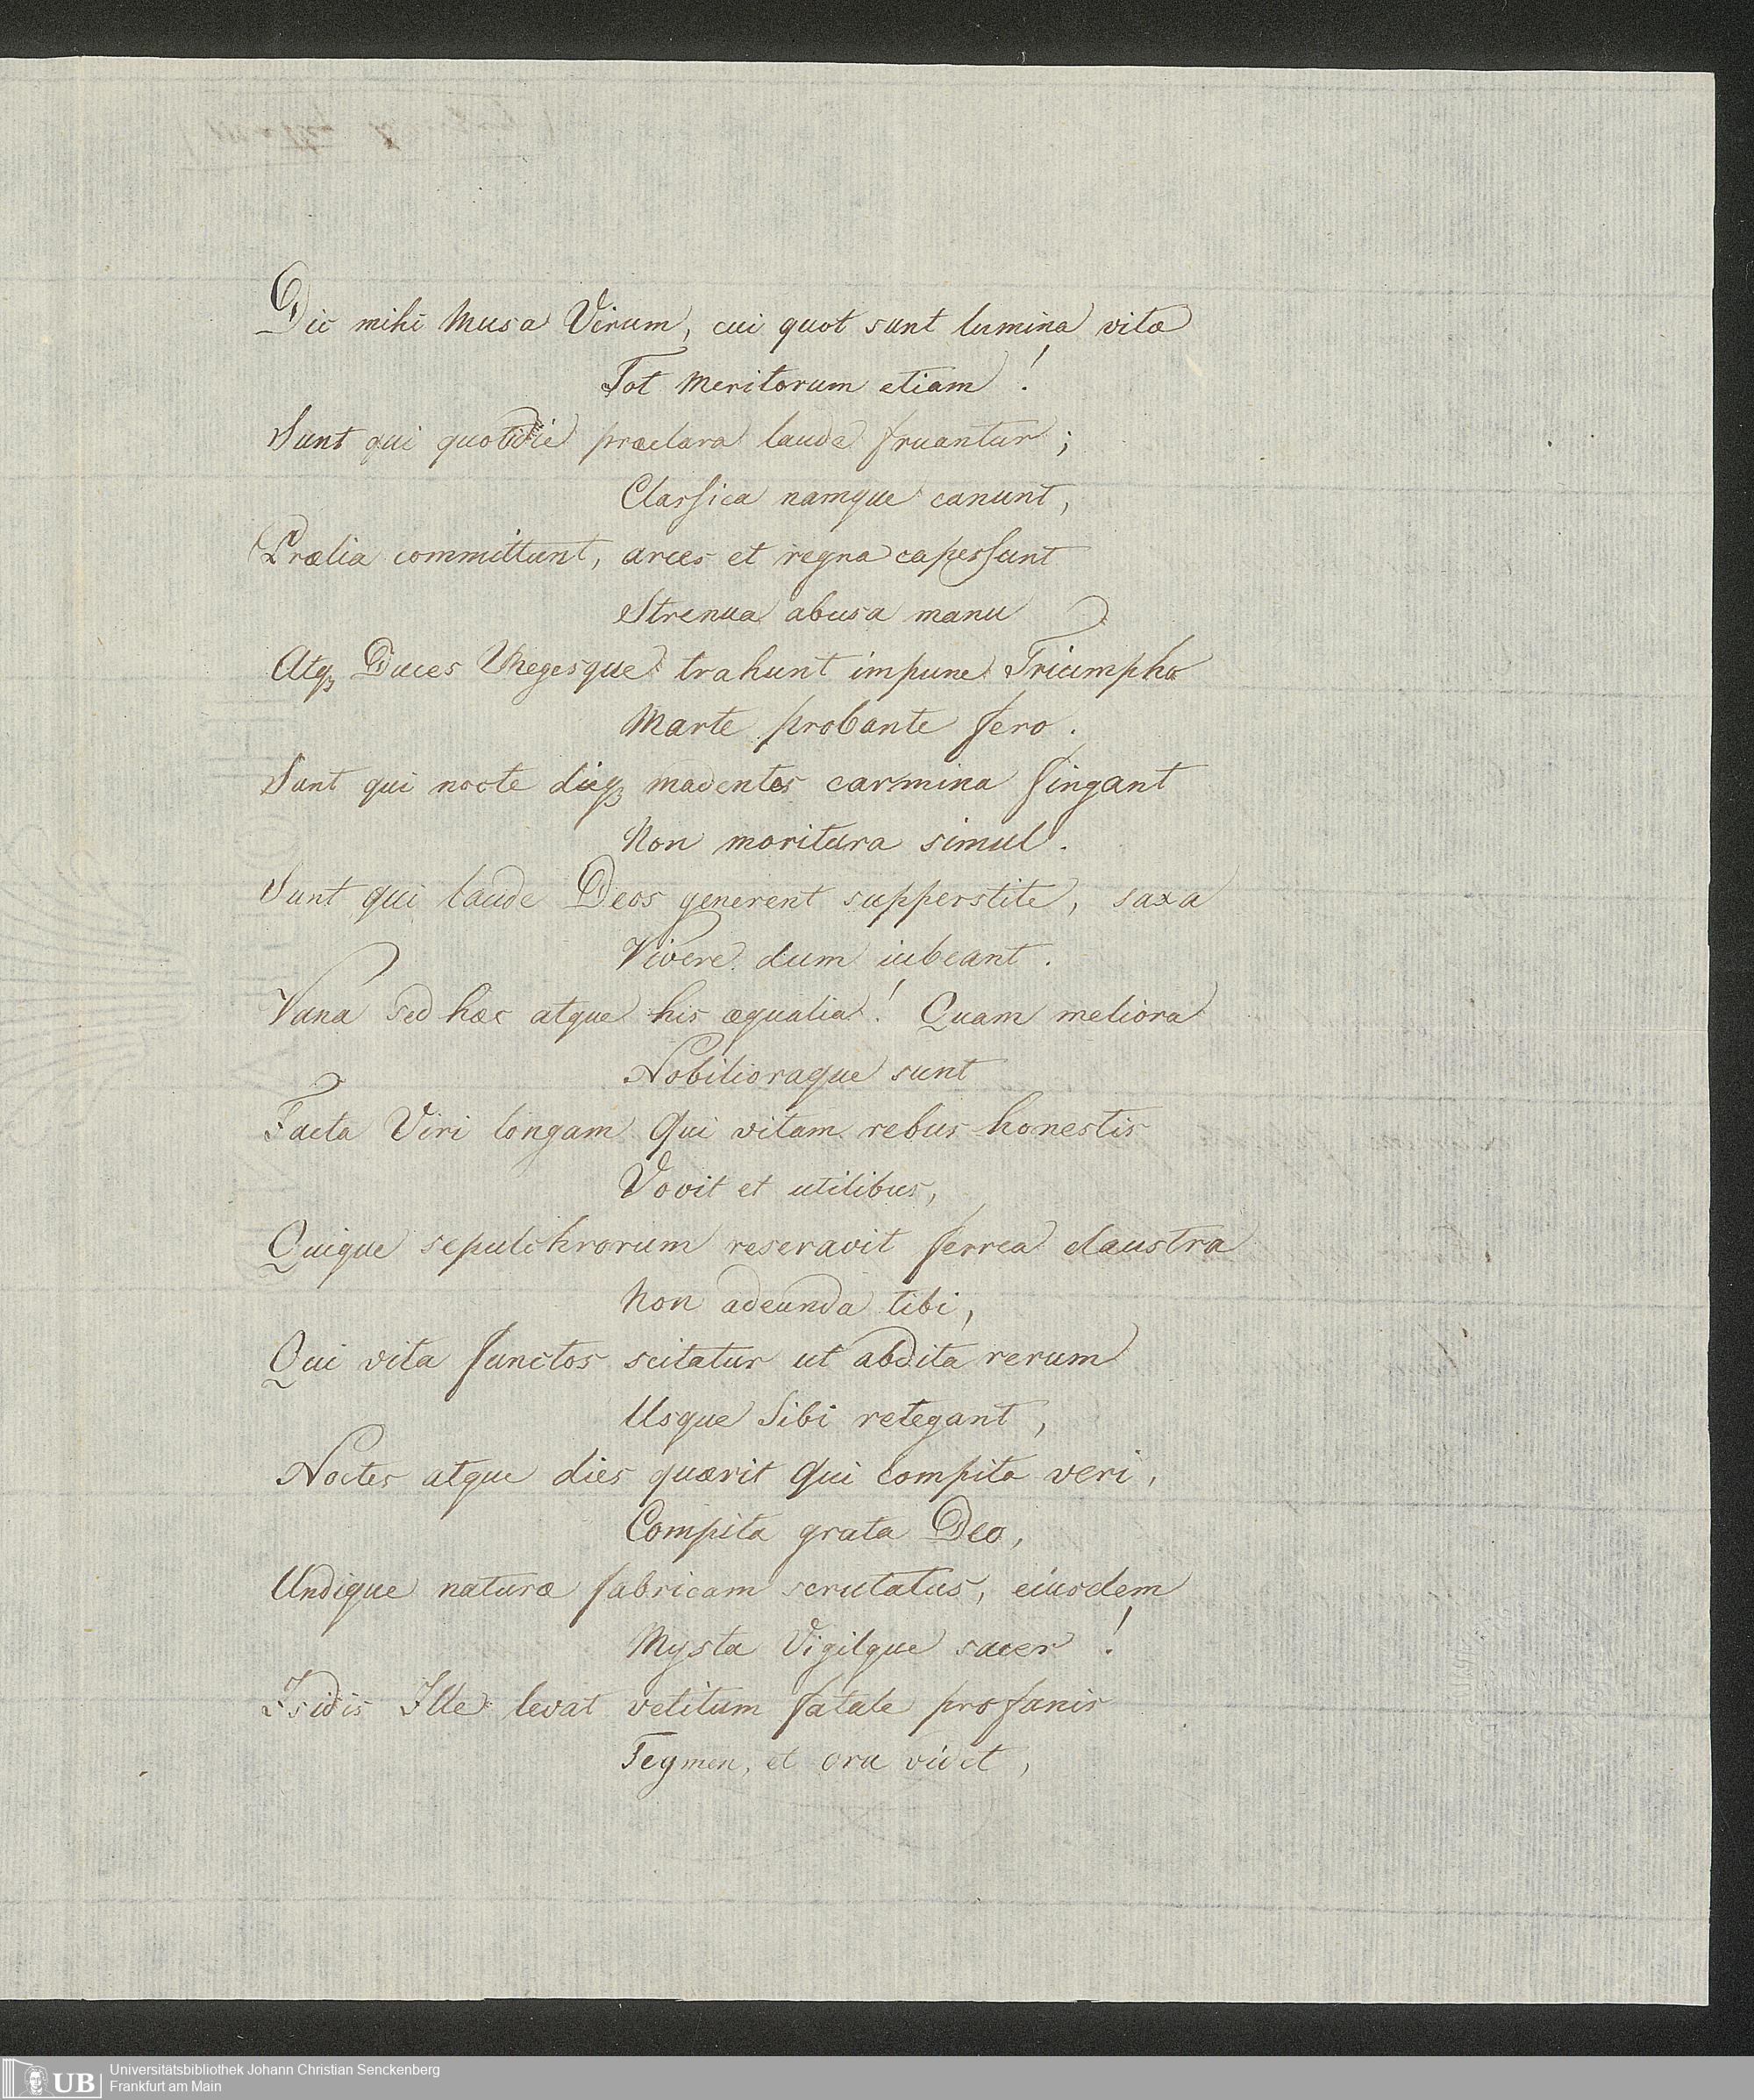 Dic mihi Musa Virum, cui quot sunt lumina vitæ
Tot meritorum etiam!
Sunt qui quotidie præclara laude fruantur;
Classica namque canunt,
Prælia committunt, arces et regna capessunt
Strenua abusa manu
Atq₃ Duces Regesque trahunt impune Triumpho
Marte probante fero.
Sunt qui nocte diuq₃ madentes carmina fingant
Non moritura simul.
Sunt qui laude Deos generent supperstite, saxa
Vivere dum iubeant.
Vana sed hæc atque his æqualia! Quam meliora
Nobilioraque sunt
Facta Viri longam Qui vitam rebus honestis
Vovit et utilibus,
Quique sepulchrorum reseravit ferrea claustra
Non adeunda tibi,
Qui vita functos scitatur ut abdita rerum
Usque Sibi retegant,
Noctes atque dies quærit Qui compita veri,
Compita grata Deo,
Undique naturæ fabricam scrutatus, eiusdem
Mysta Vigilque sacer!
Isidis Ille levat vetitum fatale profanis
Tegmen, et ora videt,
UB
Universitätsbibliothek Johann Christian Senckenberg
Frankfurt am Main